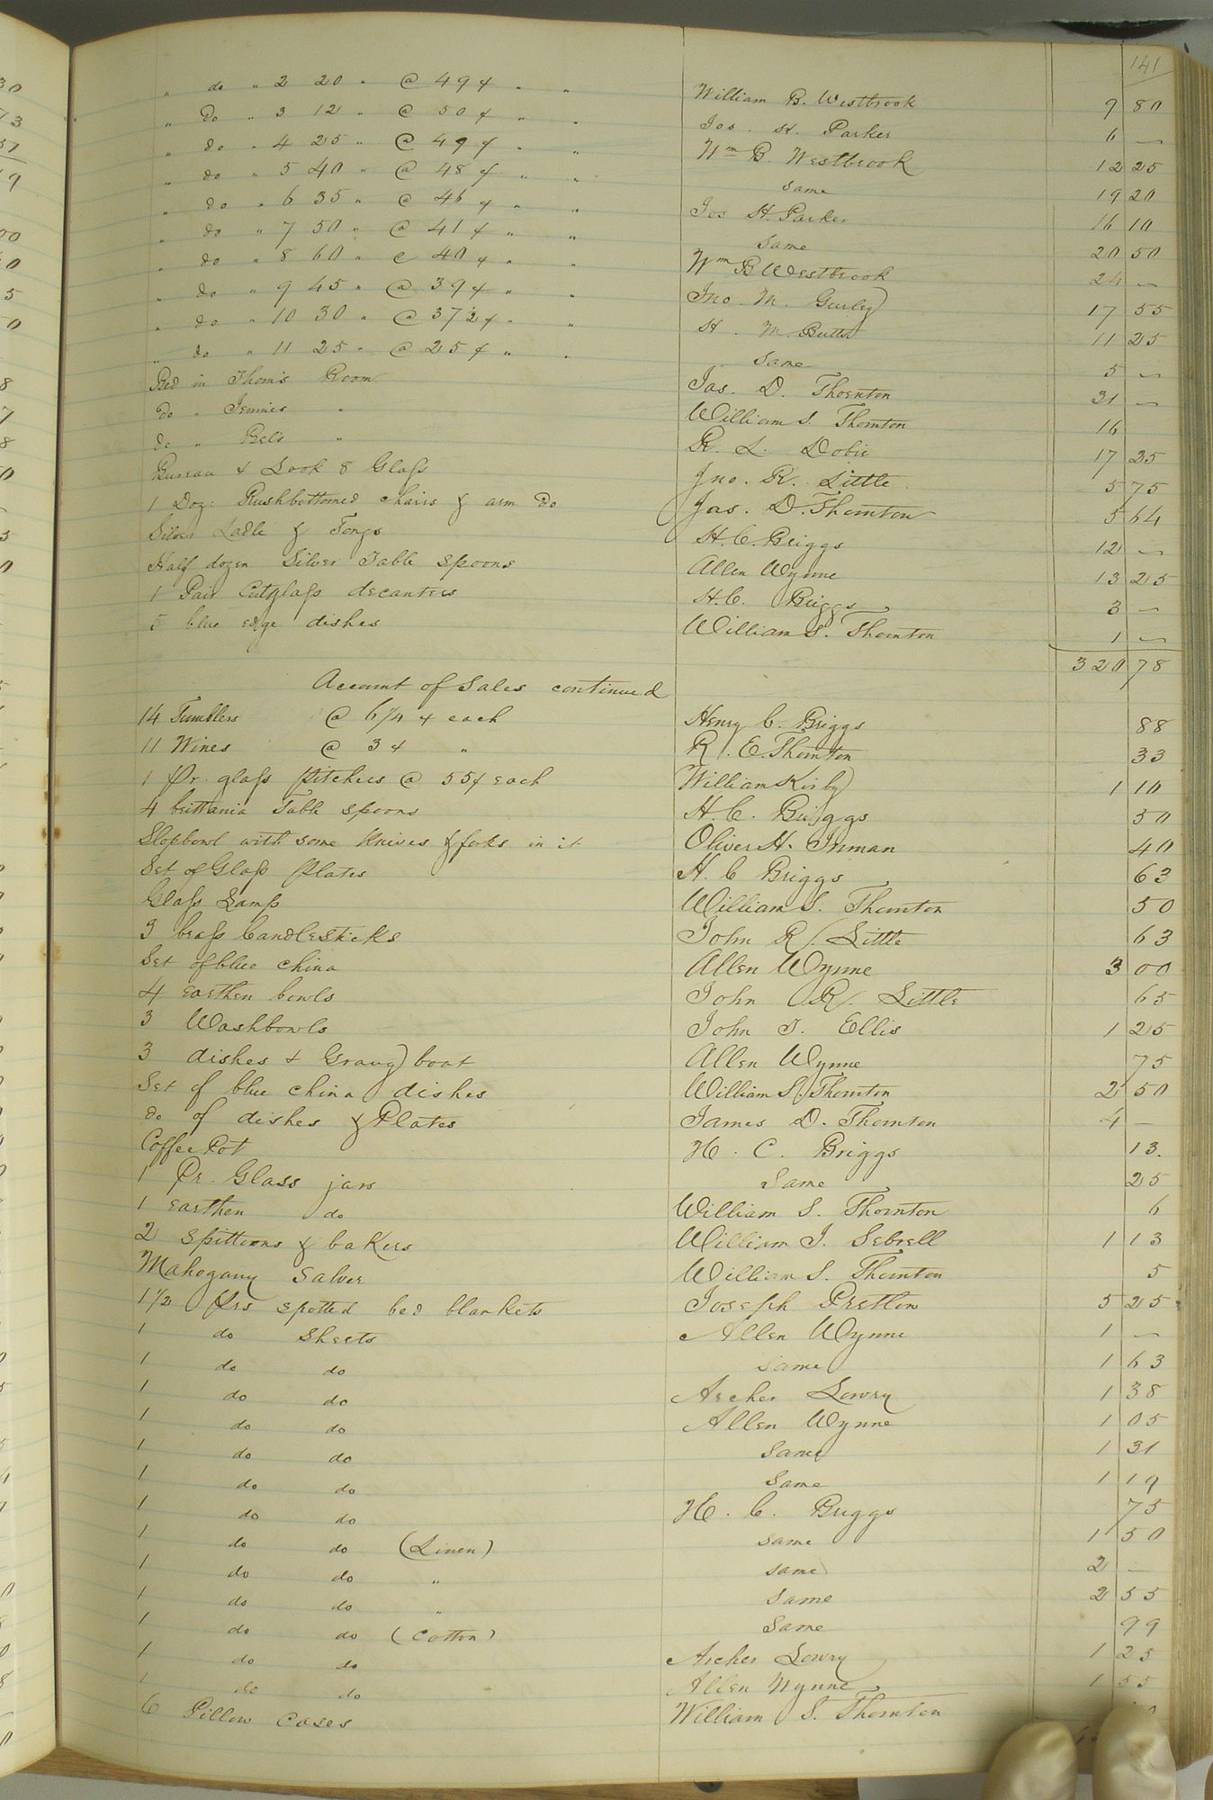 141
" do " 2 20 " @ 49 ¢ " " William B. Westbrook 9 80
" do " 3 12 " @ 50 ¢ " " Jos. H. Parker 6 —
" do " 4 25 " @ 49 ¢ " " Wm B. Westbrook 12 25
" do " 5 40 " @ 48 ¢ " " same 19 20
" do " 6 35 " @ 46 ¢ " " Jos H. Parker 16 10
" do " 7 50 " @ 41 ¢ " " same 20 50
" do " 8 60 " @ 40 ¢ " " Wm B Westbrook 24 —
" do " 9 45 " @ 39 ¢ " " Jno. M. Gurley 17 55
" do " 10 30 " @ 37½ ¢ " " H. M. Butts 11 25
" do " 11 25 " @ 25 ¢ " " same 5 —
Bed in Thom's Room Jas. D. Thornton 31 —
do " Jennies " William S. Thornton 16
do " " R. L. Dobie 17 25
Bureau & Look g Glass Jno. R. Little 5 75
1 Doz: Rushbottomed chairs & arm do Jas. D. Thornton 5 64
Silver Ladle & Tongs H. C. Briggs 12 —
Half dozen Silver Table Spoons Allen Wynne 13 25
1 Pair Cutglass decanters H. C. Briggs 3 —
5 blue edge dishes William S. Thornton 1 —
320 78
Account of Sales continued
14 Tumblers @ 6¼ ¢ each Henry C. Briggs 88
11 Wines @ 3 ¢ " R. E. Thornton 33
1 Pr. glass Pitchers @ 55¢ each William Kirby 1 10
4 brittania Table spoons H. C. Briggs 50
Slopbowl with some knives & forks in it Oliver H. Inman 40
Set of Glass Plates H. C Briggs 63
Glass Lamp William S. Thornton 50
3 brass Candlesticks John R. Little 63
Set of blue china Allen Wynne 3 00
4 earthen bowls John R. Little 65
3 Washbowls John T. Ellis 1 25
3 dishes & Gravy boat Allen Wynne 75
Set of blue china dishes William S. Thornton 2 50
do of dishes & Plates James D. Thornton 4 —
Coffee Pot H. C. Briggs 13.
1 Pr. Glass jars Same 25
1 earthen do William S. Thornton 6
2 spittoons & bakers William J. Sebrell 1 13
Mahogany Salver William S. Thornton 5
1½ Prs spotted bed blankets Joseph Pretlow 5 25
1 do Sheets Allen Wynne 1 —
1 do do same 1 63
1 do do Archer Lowry 1 38
1 do do Allen Wynne 1 05
1 do do Same 1 31
1 do do Same 1 19
1 do do H. C. Briggs 75
1 do do (Linen) same 1 50
1 do do " same 2 —
1 do do " Same 2 55
1 do do (Cotton) Same 99
1 do do Archer Lowry 1 25
1 do do Allen Wynne 1 55
6 Pillow Cases William S. Thornton